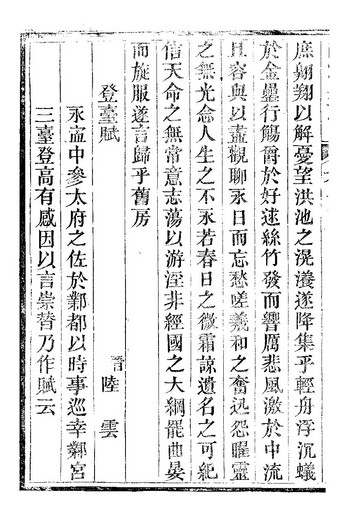 庶翺翔以解憂望洪池之滉瀁遂降集乎輕舟浮沉蟻
於金罍行觴爵於好逑絲竹發而響厲悲風激於中流
且容與以盡觀聊永日而忘愁嗟羲和之奮迅怨曜靈
之無光念人生之不永若春日之微霜諒遺名之可紀
信天命之無常意志蕩以游淫非經國之大綱罷曲晏
而旋服遂言歸乎舊房
登臺賦
晉陸雲
永寧中參太府之佐於鄴都以時事巡幸鄴宮
三臺登高有感因以言崇替乃作賦云